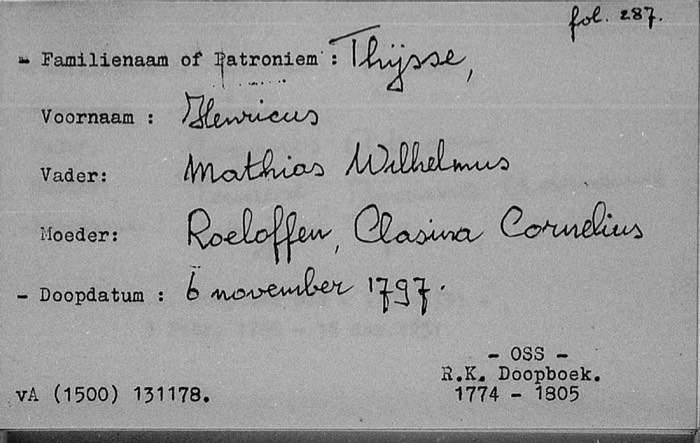 fol. 287.
- Familienaam of Patroniem : Thijsse,
Voornaam : Henricus
Vader: Mathias Wilhelmus
Moeder: Roeloffen, Clasina Cornelius
- Doopdatum : 6 november 1797.
- OSS -
R.K. Doopboek.
vA (1500) 131178.
1774 - 1805